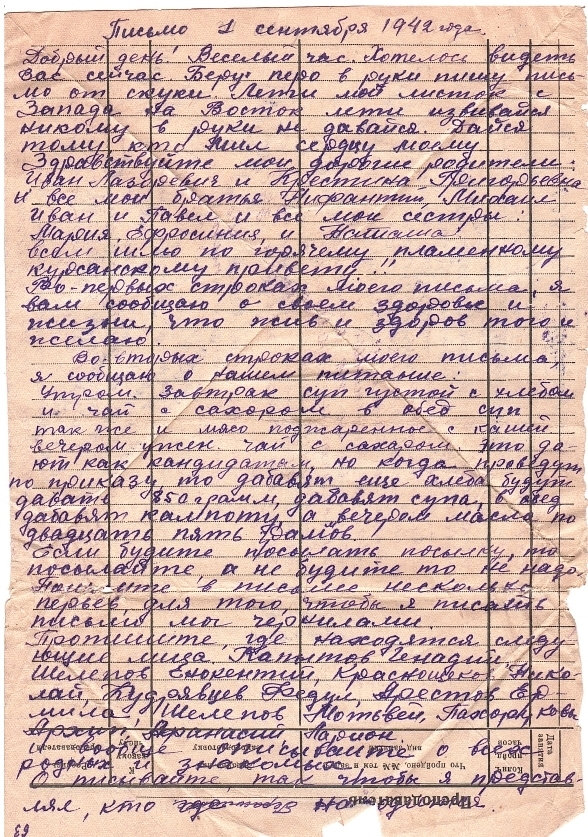 Письмо 1 сентября 1942 года.
Добрый день! Веселый час. Хотелось видеть
вас сейчас. Беру перо в руки пишу пись
мо от скуки. Лети мой листок с
Запада на Восток лети извивайся
никому в руки не давайся. Дайся
тому кто мил сердцу моему.
Здравствуйте мои дорогие родители:
Иван Лазаревич и Крестина Григорьевна
и все мои братья Нифантий, Михаил
Иван и Павел и все мои сестры:
Мария, Ефросиния, и Наташа!
всем шлю по горячему пламенному
курсанскому привету!!
Во-первых строках моего письма, я
вам сообщаю о своем здоровье и
жизни, что жив и здоров того и
желаю.
Во-вторых строках моего письма,
я сообщаю о нашем питание:
Утром завтрак суп густой с хлебом
и чай с сахором в обед суп
так же и мясо поджаренное с кашей
вечером ужен. чай с сахаром это да-
ют как кандидатам, но когда проведут
по приказу то дабавят еще хлеба будут
давать 850 грамм, дабавят супа, в обед
дабавят кампоту, а вечером масла по
двадцать пять грамов.
Если будите посылать посылку, то
посылайте, а не будите то не надо.
Пошлите в письме несколько
перьев, для того, чтобы я писать
письма мог чернилами.
Пропишите, где находятся следу-
ющие лица. Капытов Генадий,
Шелепов Енокентий, Краснощеков Нико-
лай, Кудрявцев Федул, Арестов Ер-
мила, Шелепов Мотьвей,
Архип, Афанасий Ларион.
о всех
родных и знакомых.
Описывайте, так чтобы я представ-
лял, кто где находится.
Дата занятия
Колич. часов
Что пройдено, №№ тем и
Преподаватель
63